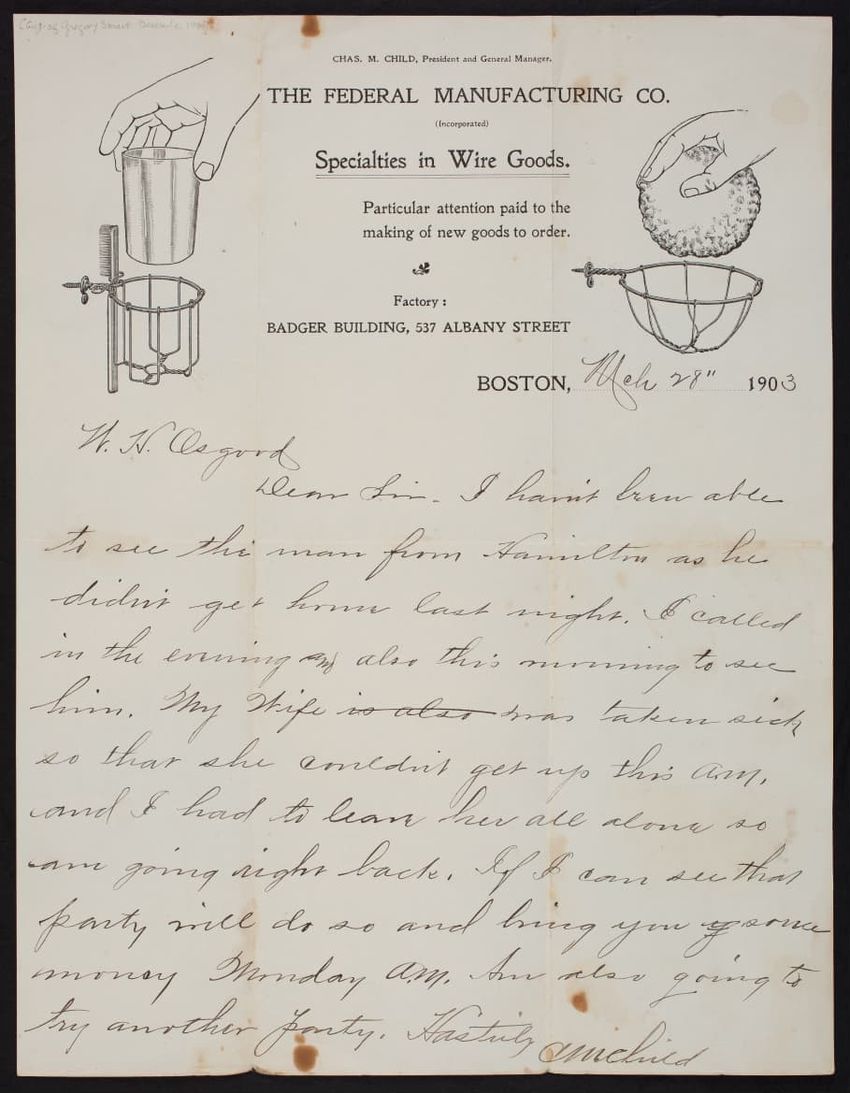 CHAS. M. CHILD, President and General Manager.
THE FEDERAL MANUFACTURING CO.
(Incorporated)
Specialties in Wire Goods.
Particular attention paid to the
making of new goods to order.
Factory:
BADGER BUILDING, 537 ALBANY STREET
BOSTON, Mch 28" 1903
W. H. Osgood
Dear Sir. I havn't been able
to see the man from Hamilton as he
didn't get home last night. I called
in the evening and also this morning to see
him. My Wife is also was taken sick
so that she couldn't get up this A.M.
and I had to leave her all alone so
am going right back. If I can see that
party will do so and bring you some
money Monday A.M. Am also going to
try another party. Hastily CMChild